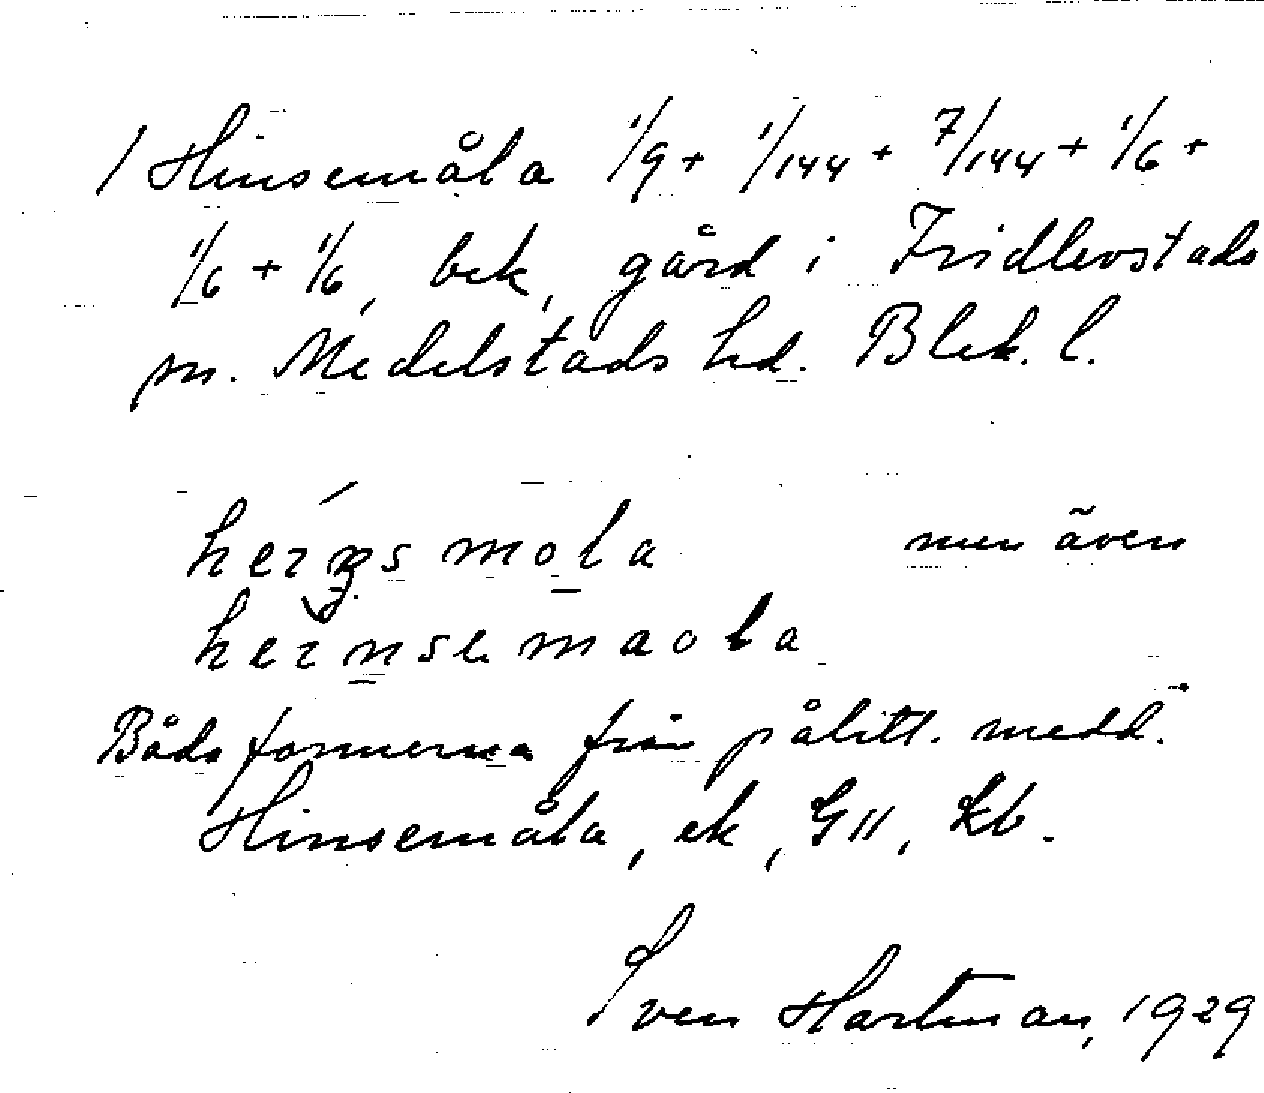 / Hinsemåla 1/9 + 1/144 + 7/144 + 1/6 +
1/6 + 1/6, bek, gård i Fridlevstads
sn. Medelstads hd. Blek. l.
men även
Båda formerna från pålitl. medd.
Hinsemåla, ek, G11, Kb.
Sven Hartman, 1929